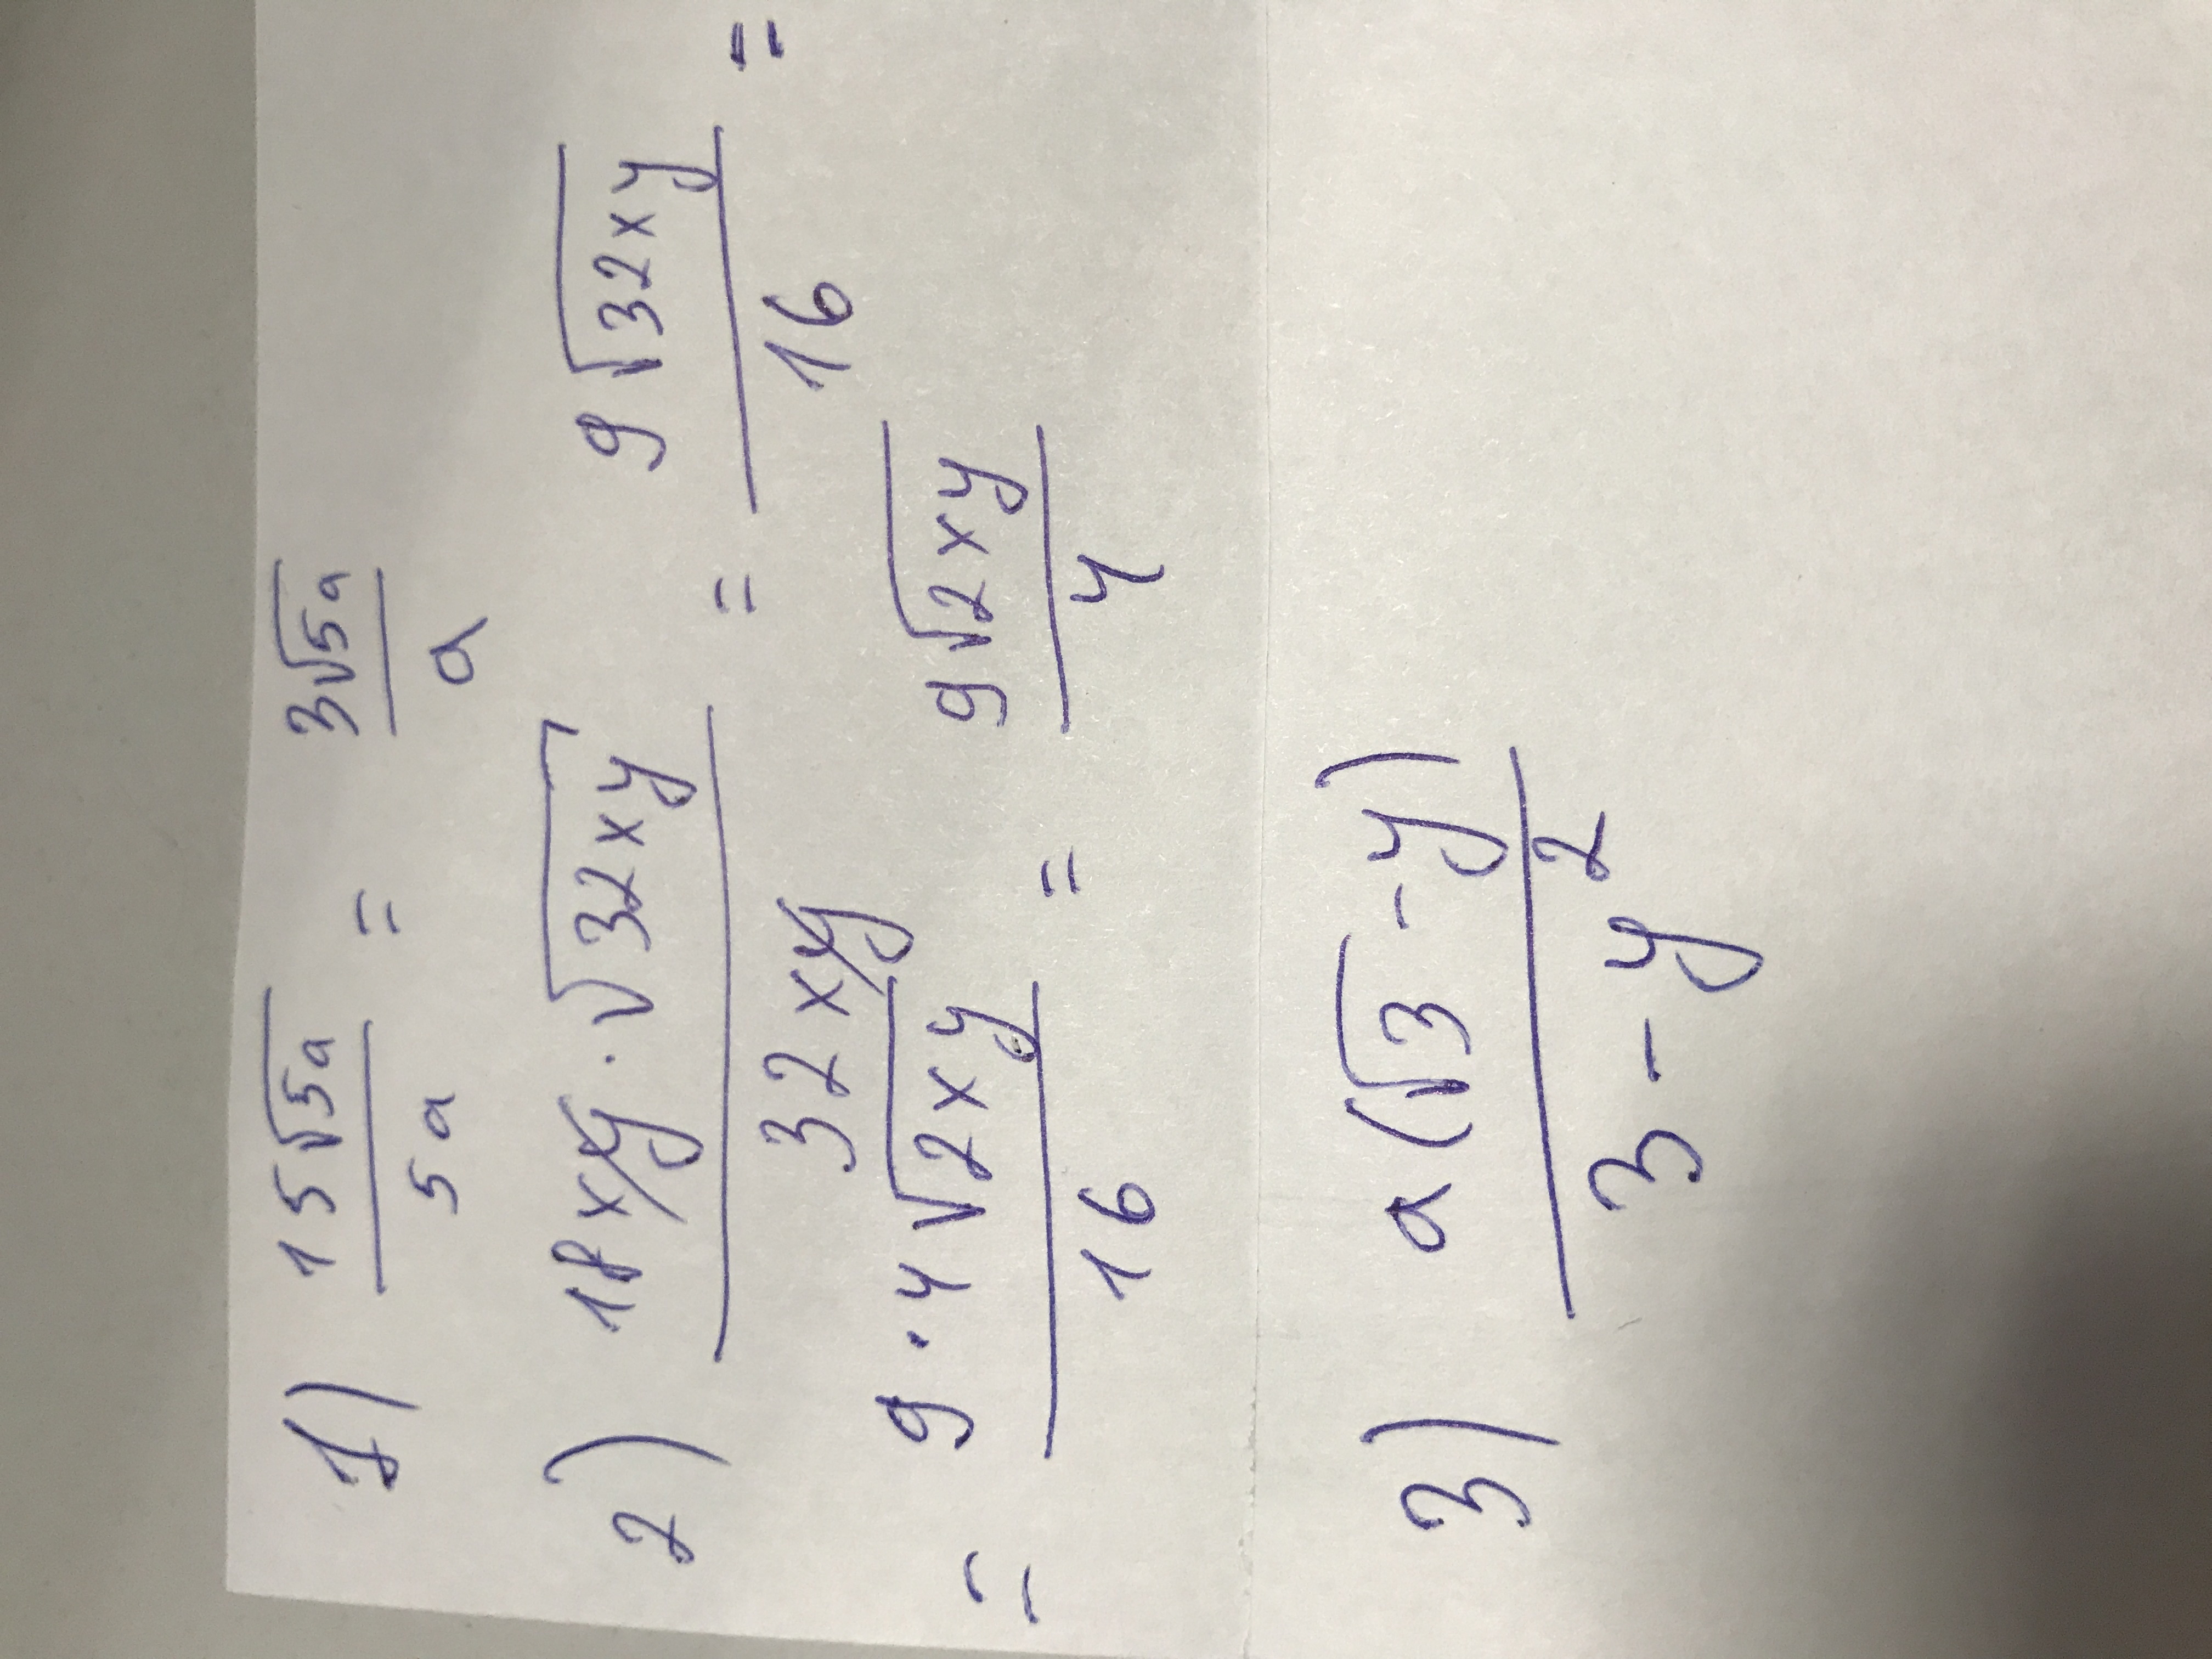 1) 15√5a / 5a = 3√5a / a
2) 18xy · √32xy / 32xy = 9√32xy / 16 =
= 9 · 4√2xy / 16 = 9√2xy / 4
3) a(√3 - y) / 3 - y²